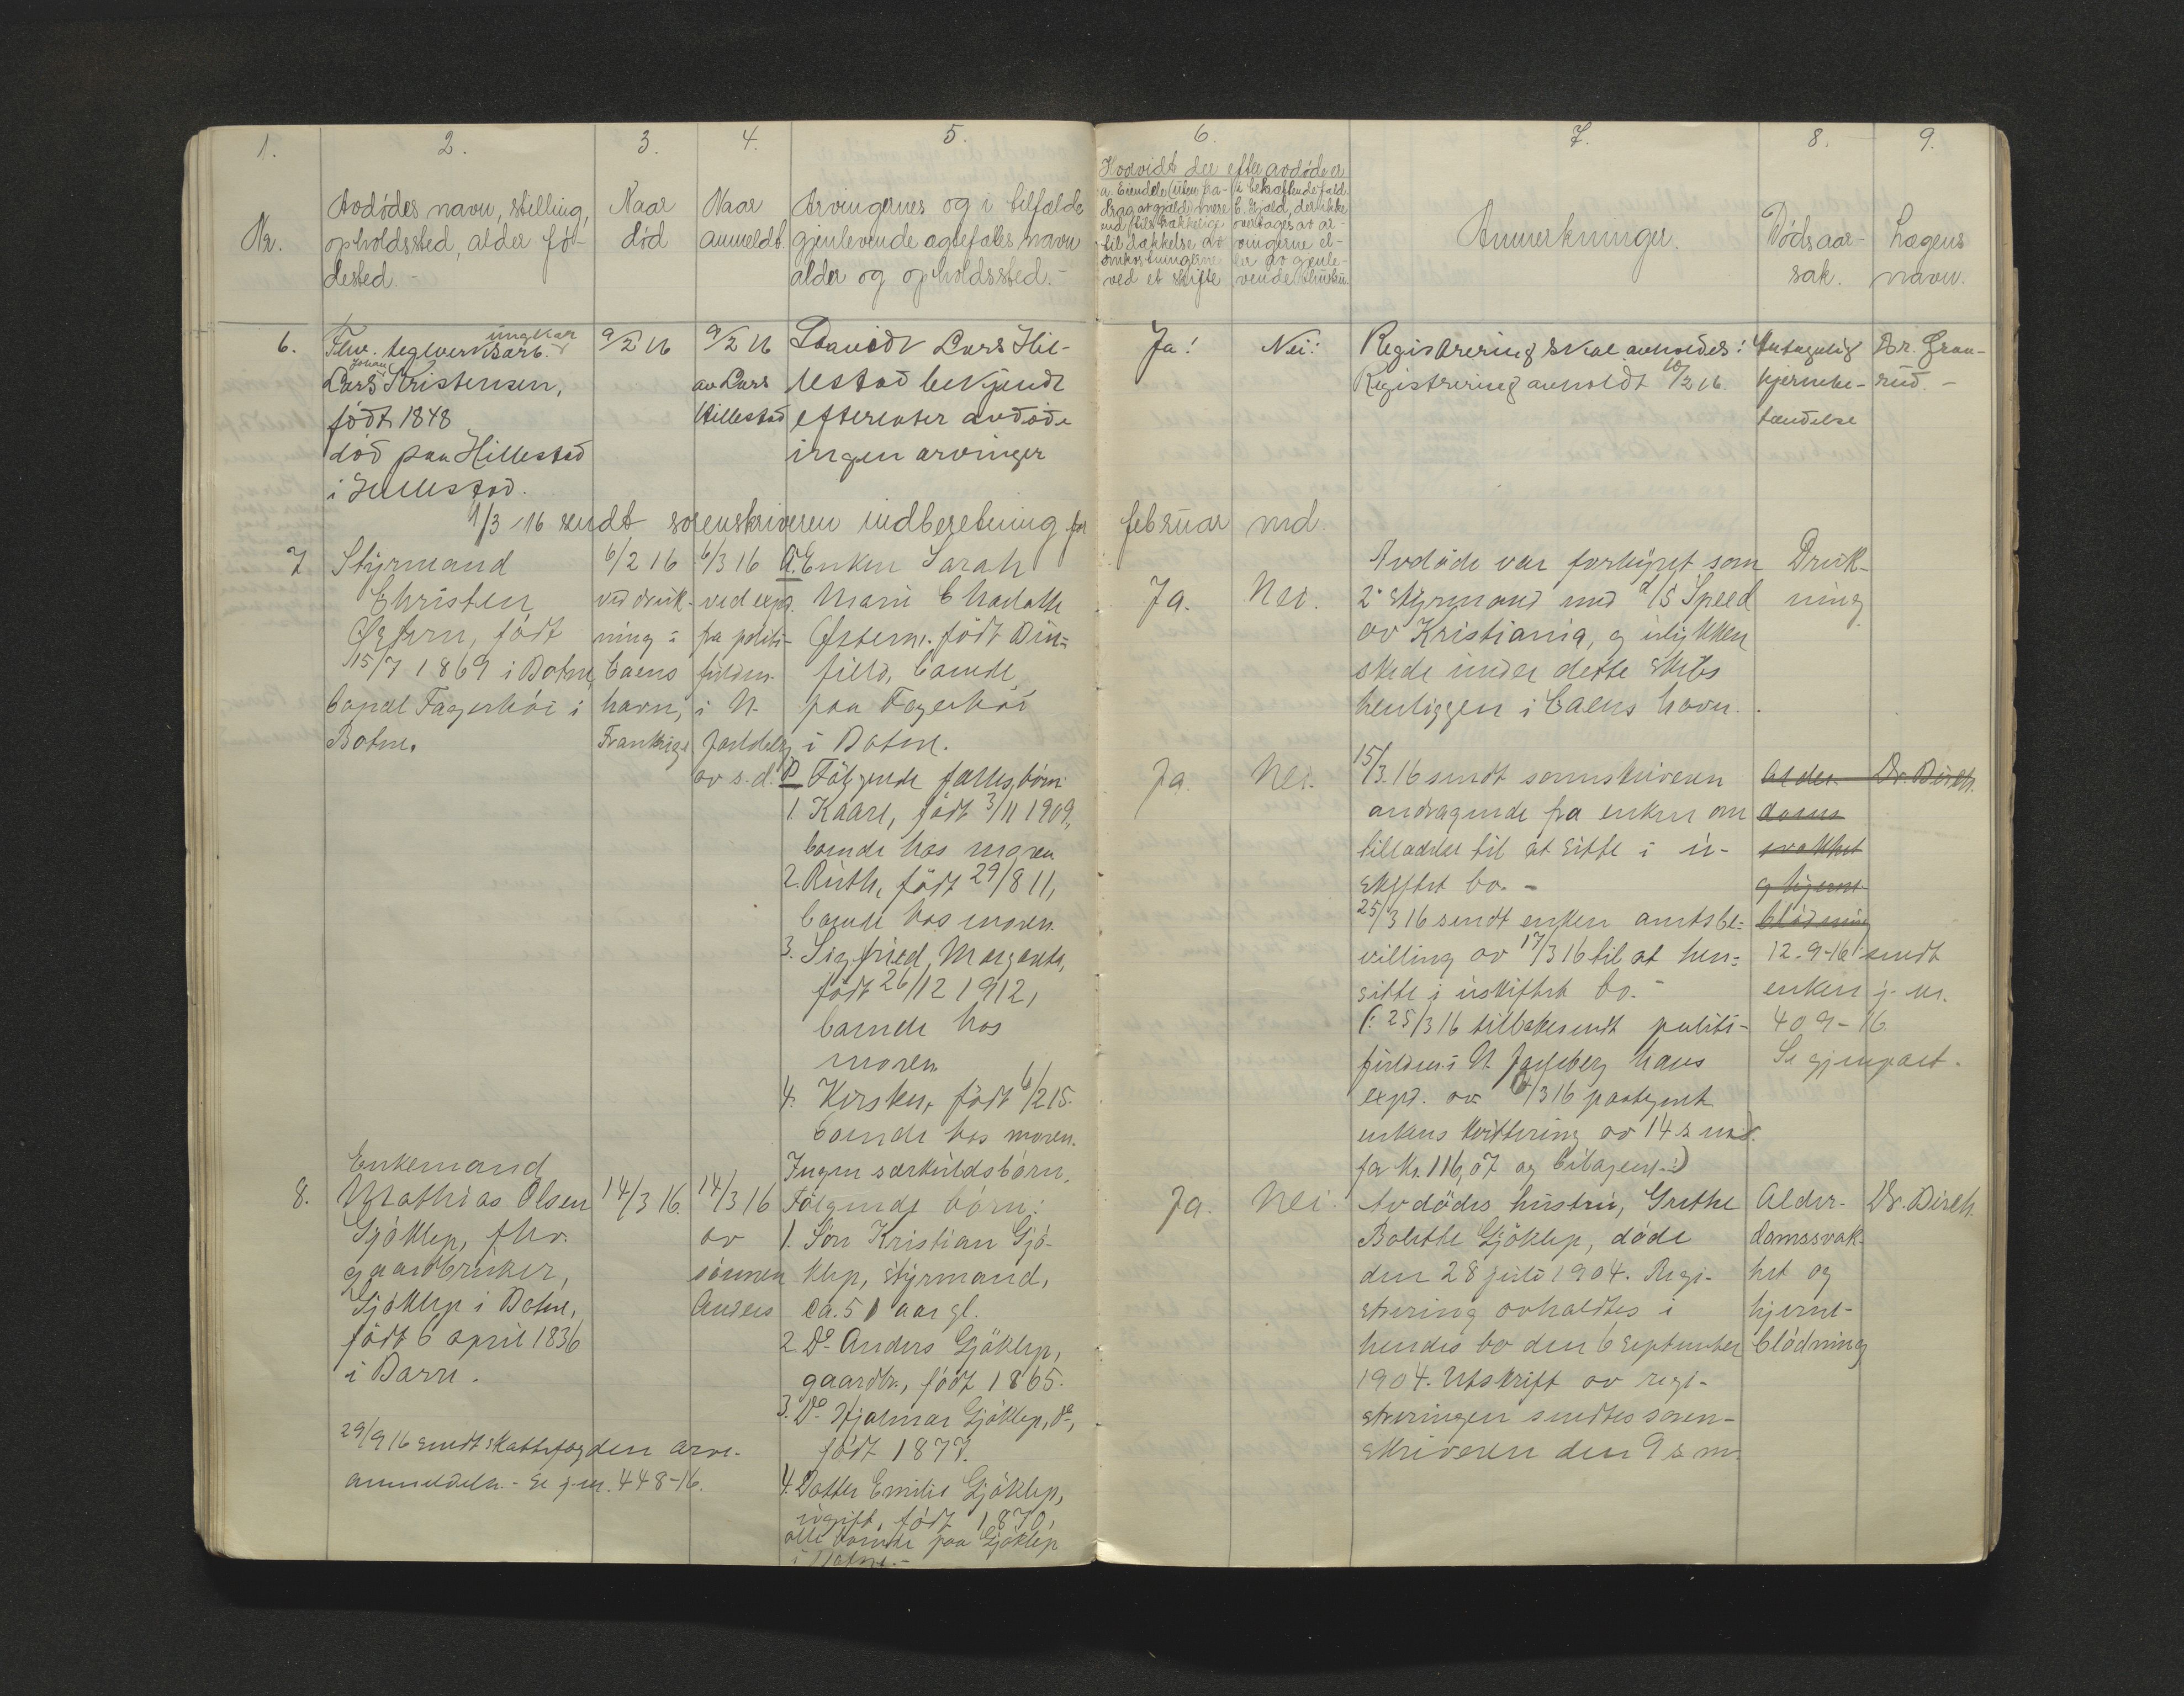 1. 2. 3. 4. 5. 6. 7. 8. 9.
Nr.
Avdødes navn, stilling,
opholdssted, alder fø-
dested.-
Naar
død
Naar
anmeldt.
Arvingernes og i tilfælde
gjenlevende ægtefæles navn
alder og opholdssted.-
Hvorvidt der efter avdøde er
a. Eiendele (uten fra-
drag av gjæld) mere
end tilstrækkelige
til dækkelse av
omkostningerne
ved et skifte
i bekræftende fald
b. Gjæld, der ikke
overtages av ar-
vingerne el-
ler av gjenle-
vende
Anmerkninger.
Dødsaar-
sak.
Lægens
navn.
6.
ungkar
Fhv. teglverksarb.
Johan
Lars Kristensen,
født 1848
død paa Hillestad
i Hillestad.
9/2 16
9/2 16
av Lars
Hillestad
Lars Hil-
lestad bekjendt
efterlater avdøde
ingen arvinger
Ja!
Nei!
Registrering skal avholdes!
Registrering avholdt 10/2 16.
Antagelig
hjernebe-
tændelse
Dr. Gran-
rud.-
1/3 -16 sendt sorenskriveren indberetning for februar md.
7
Styrmand
Christen
født
15/7 1869 i Botne,
bopæl Fagerhøi i
Botne.
6/2 16
ved druk-
ning i
Caens
havn,
Frankrige
6/3 16
ved expd.
fra politi-
fuldm.
i N.
Jarlsberg
av s.d.
A. Enken Sarah
Marie Charlotte
født Duu-
field, boende
paa Fagerhøi
i Botne.
B Følgende fællesbørn
1. Kaare, født 3/11 1909,
boende hos moren
2. Ruth, født 29/8 11,
boende hos moren.
3. Sigfried Margrethe,
født 26/12 1912,
boende hos
moren
4. Kirsten, født 6/2 15.
boende hos moren.
Ingen særkuldsbørn.
Ja.
Nei.
Avdøde var forhyret som
2. styrmand med d/s Speed
av Kristiania, og ulykken
skede under dette skibs
henliggen i Caens havn.
Druk-
ning
Ja.
Nei.
15/3. 16 sendt sorenskriveren
andragende fra enken om
tilladelse til at sitte i u-
skiftet bo.-
25/3 16 sendt enken amtsbe-
villing av 17/3 16 til at hen-
sitte i uskiftet bo.-
(: 25/3 16 tilbakesendt politi-
fuldm. i N. Jarlsberg hans
expd. av 6/3 16 paategnet
enkens kvittering av 14 s. md.
for kr. 116,07 og bilagene:)
Alder-
doms
svakhet
og hjerne
blødning
Dr. Birch.
12-9-16 sendt
enken j. nr.
409-16
Se gjenpart.
8.
Enkemand
Mathias Olsen
Gjøklep, fhv.
gaardbruker,
Gjøklep i Botne,
født 6 april 1836
i Borre.
29/9 16 sendt skattefogden arve-
anmeldelse.- Se j.nr. 448-16.
14/3 16.
14/3 16
av
sønnen
Anders
Følgende børn:
1. Søn Kristian Gjø-
klep, styrmand,
ca. 51 aar gl.
2. Do. Anders Gjøklep,
gaardbr., født 1865.
3. Do. Hjalmar Gjøklep, do.,
født 1877.
4. Datter Emilie Gjøklep,
ugift, født 1870,
alle boende paa Gjøklep
i Botne.-
Ja.
Nei.
Avdødes hustru, Grethe
Bolette Gjøklep, døde
den 28 juli 1904. Regi-
strering avholdtes i
hendes bo den 6 september
1904. Utskrift av regi-
streringen sendtes soren-
skriveren den 9 s. m.
Alder-
domssvak-
het og
hjerne-
blødning
Dr. Birch.